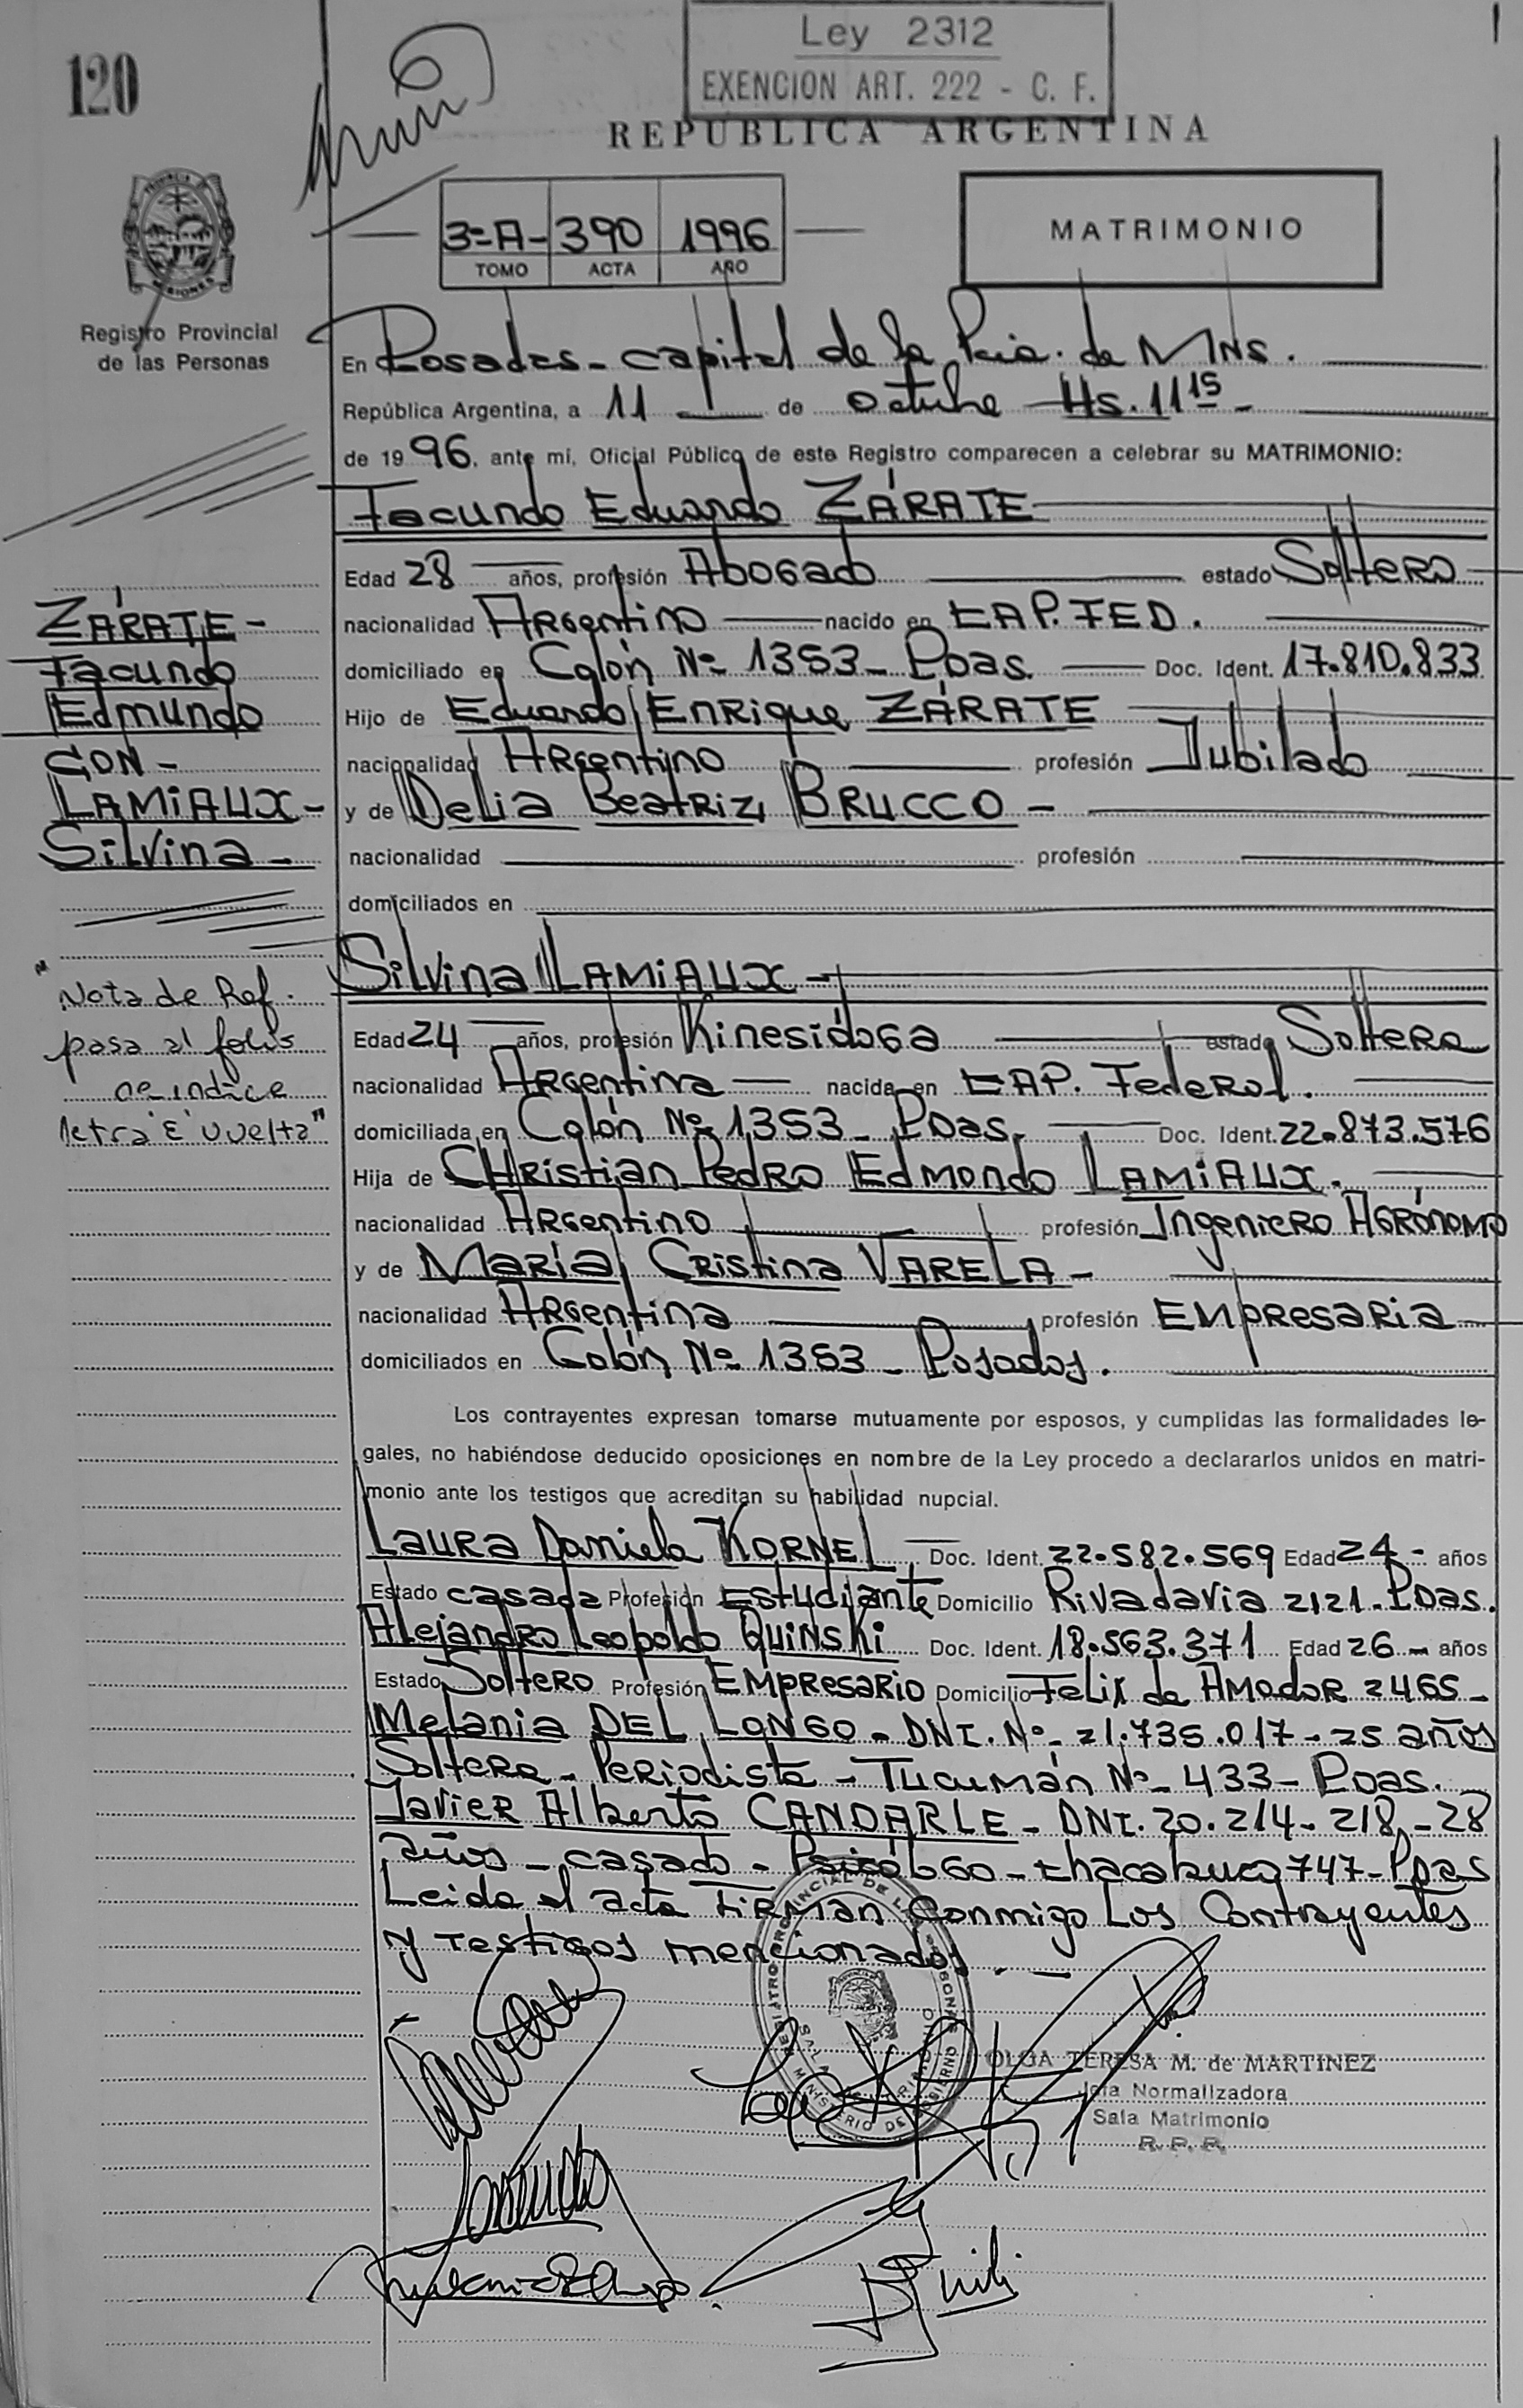 Ley 2312
EXENCION ART. 222 - C. F.
120
REPUBLICA ARGENTINA
3=A- 390 1996
TOMO ACTA AÑO
MATRIMONIO
Registro Provincial
de las Personas
En Posadas - capital de la Pcia. de MNS.
República Argentina, a 11 de octubre Hs. 11 15 -
de 1996, ante mí, Oficial Público de este Registro comparecen a celebrar su MATRIMONIO:
Facundo Eduardo ZÁRATE
Edad 28 años, profesión Abogado estado Soltero
nacionalidad Argentino nacido en CAP. FED.
domiciliado en Colón Nº 1353 - Pdas. Doc. Ident. 17.810.833
Hijo de Eduardo Enrique ZÁRATE
nacionalidad Argentino profesión Jubilado
y de Delia Beatriz BRUCCO -
nacionalidad profesión
domiciliados en
ZÁRATE -
Facundo
Edmundo
CON -
LAMIAUX -
Silvina -
"Nota de Ref.
pasa al folio
de indice
letra "E" vuelta"
Silvina LAMIAUX -
Edad 24 años, profesión Kinesióloga estado Soltera
nacionalidad Argentina nacida en CAP. Federal.
domiciliada en Colón Nº 1353 - Pdas. Doc. Ident. 22.873.576
Hija de CHristian Pedro Edmondo LAMIAUX.
nacionalidad Argentino profesión Ingeniero AGRÓNOMO
y de María Cristina VARELA -
nacionalidad Argentina profesión EMPRESARIA
domiciliados en Colón Nº 1353 - Posadas.
Los contrayentes expresan tomarse mutuamente por esposos, y cumplidas las formalidades le-
gales, no habiéndose deducido oposiciones en nombre de la Ley procedo a declararlos unidos en matri-
monio ante los testigos que acreditan su habilidad nupcial.
Laura Daniela KORNEL Doc. Ident. 22.582.569 Edad 24 - años
Estado casada Profesión Estudiante Domicilio Rivadavia 2121 - Pdas.
Alejandro Leopoldo QUINSKI Doc. Ident. 18.563.371 Edad 26 - años
Estado Soltero Profesión EMPRESARIO Domicilio Felix de AMADOR 2465 -
Melania DEL LONGO - DNI. Nº 21.735.017 - 25 años
Soltera - Periodista - Tucumán Nº 433 - Pdas.
Javier Alberto CANDARLE - DNI. 20.214.218 - 28
años - casado - Psicólogo - Chacabuco 747 - Pdas
Leida el acta FIRMAN Conmigo Los Contrayentes
y Testigos mencionados. -
REGISTRO PROVINCIAL DE LAS PERSONAS
SALA MATRIMONIO
MINISTERIO DE GOBIERNO
OLGA TERESA M. de MARTINEZ
Jefa Normalizadora
Sala Matrimonio
R. P. P.